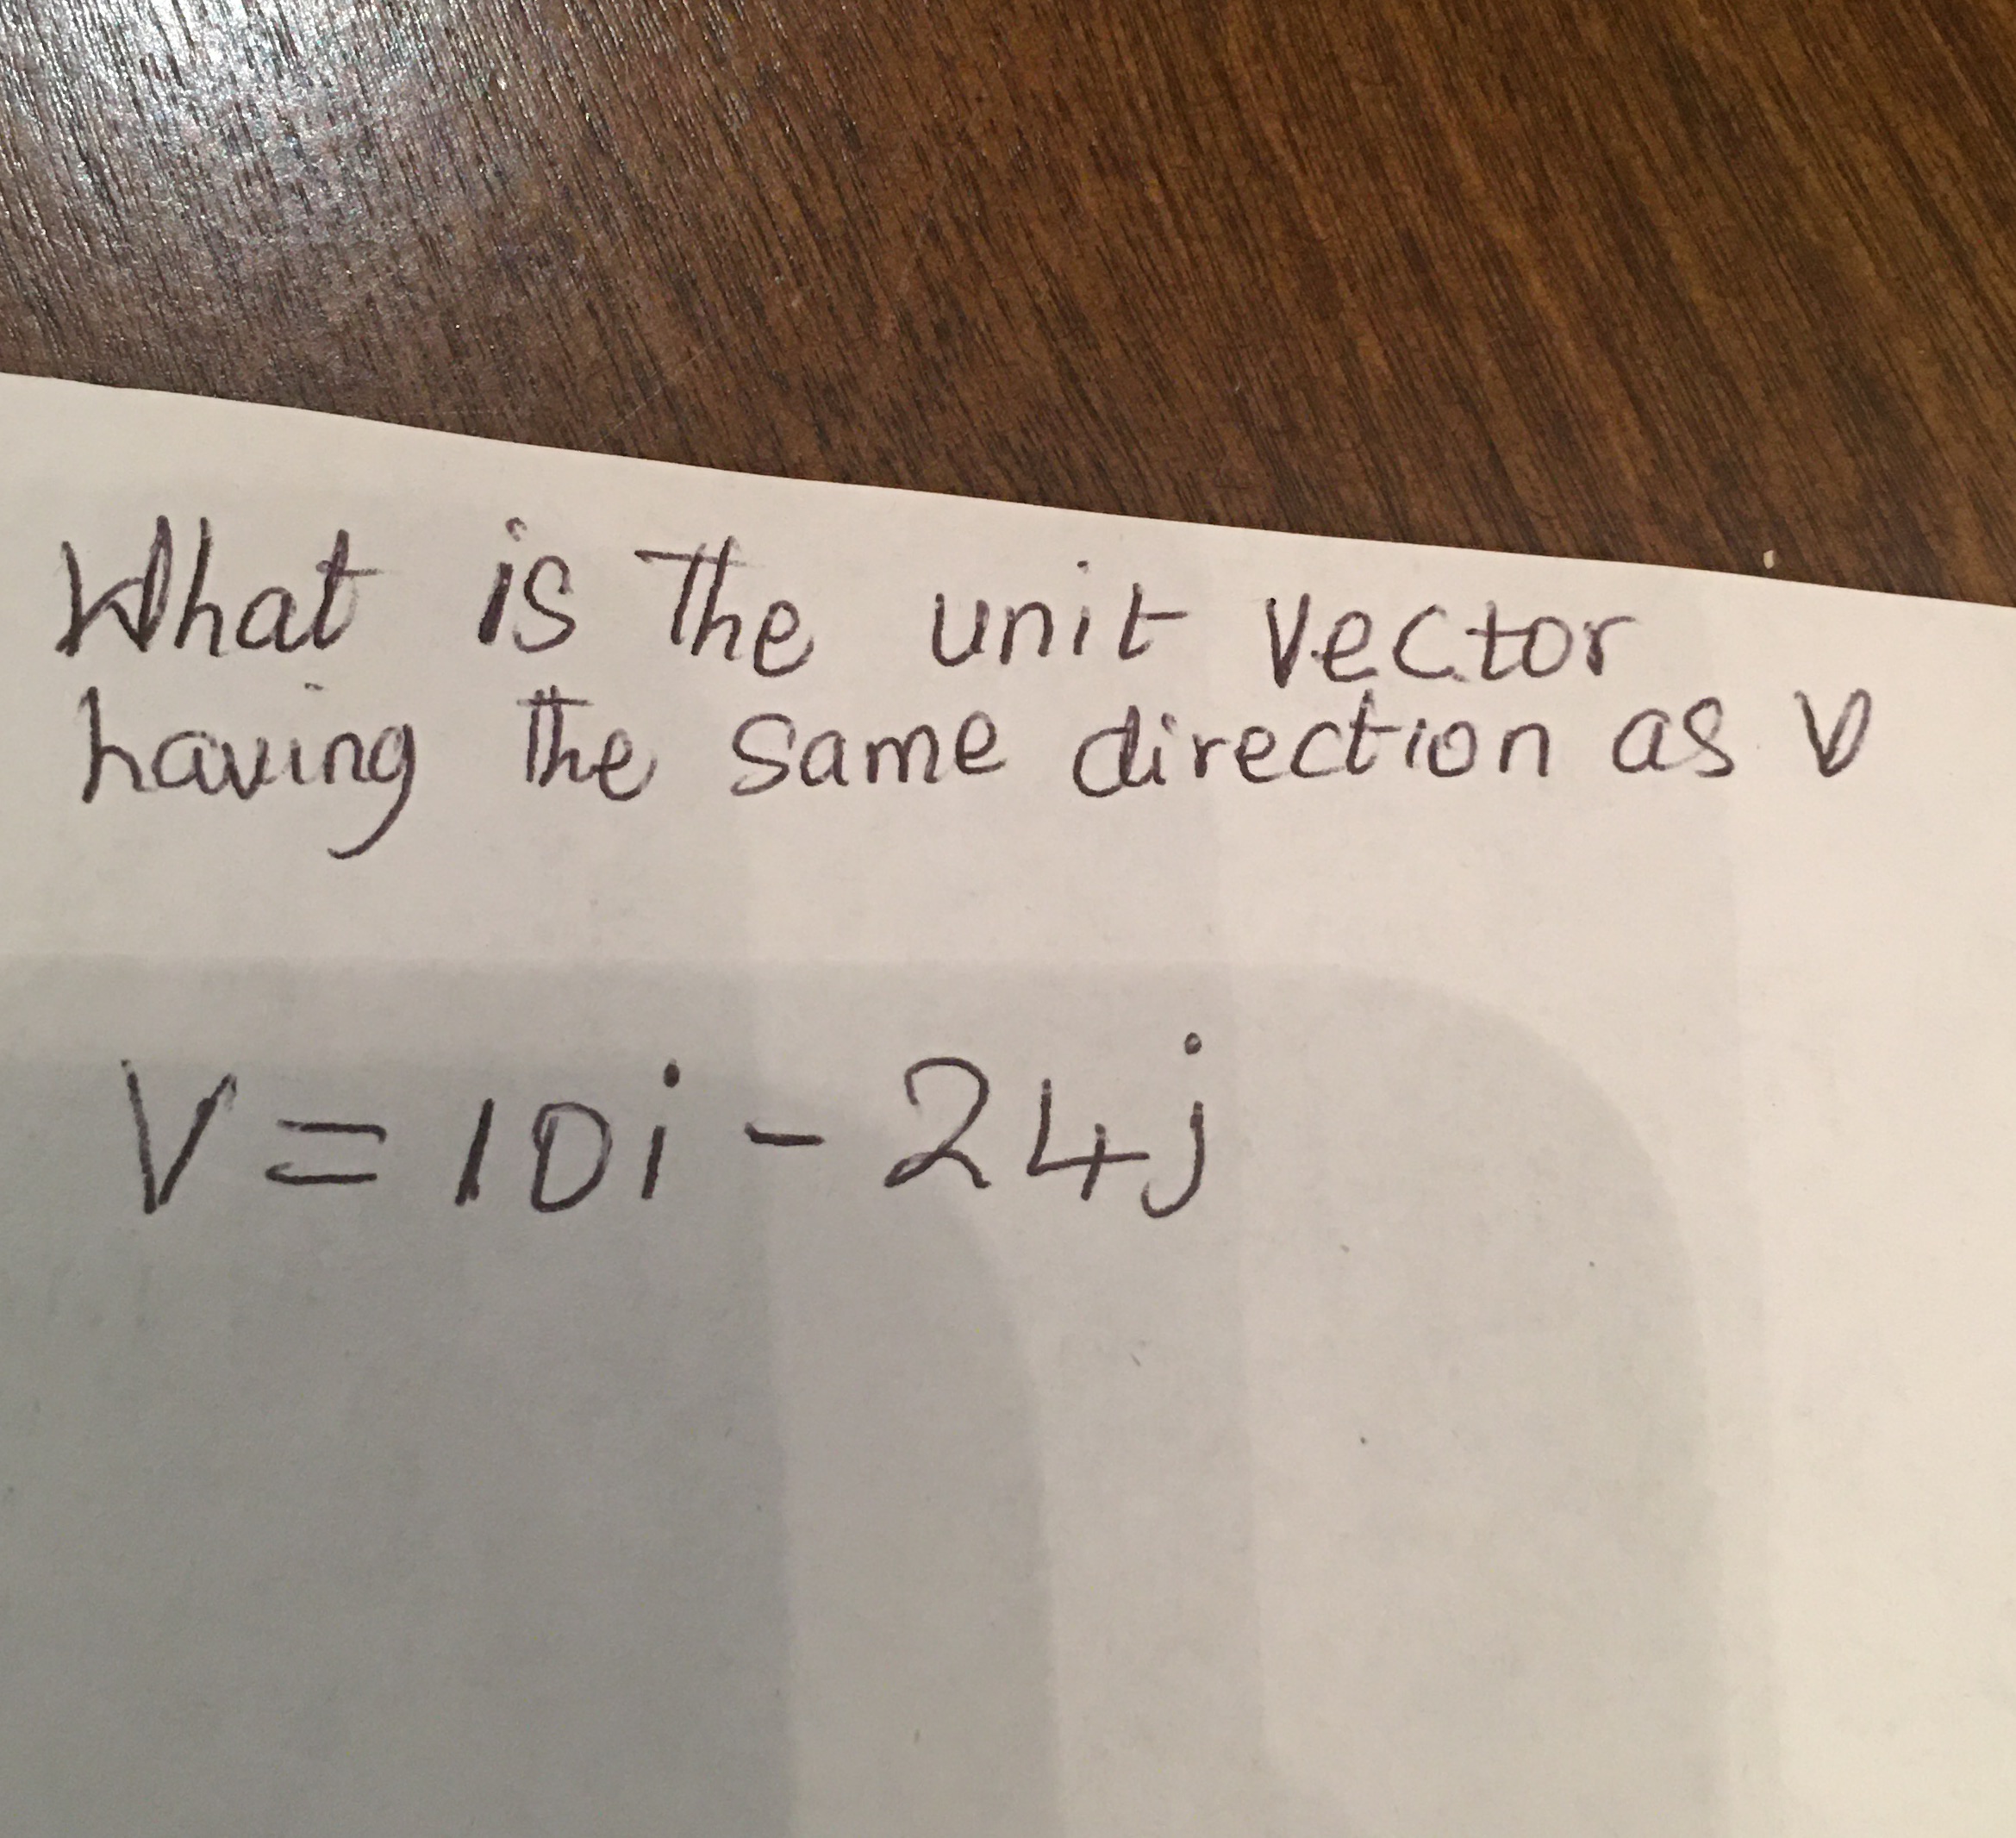 What is The unit vector
having the same direction as V
V = 10i - 24j